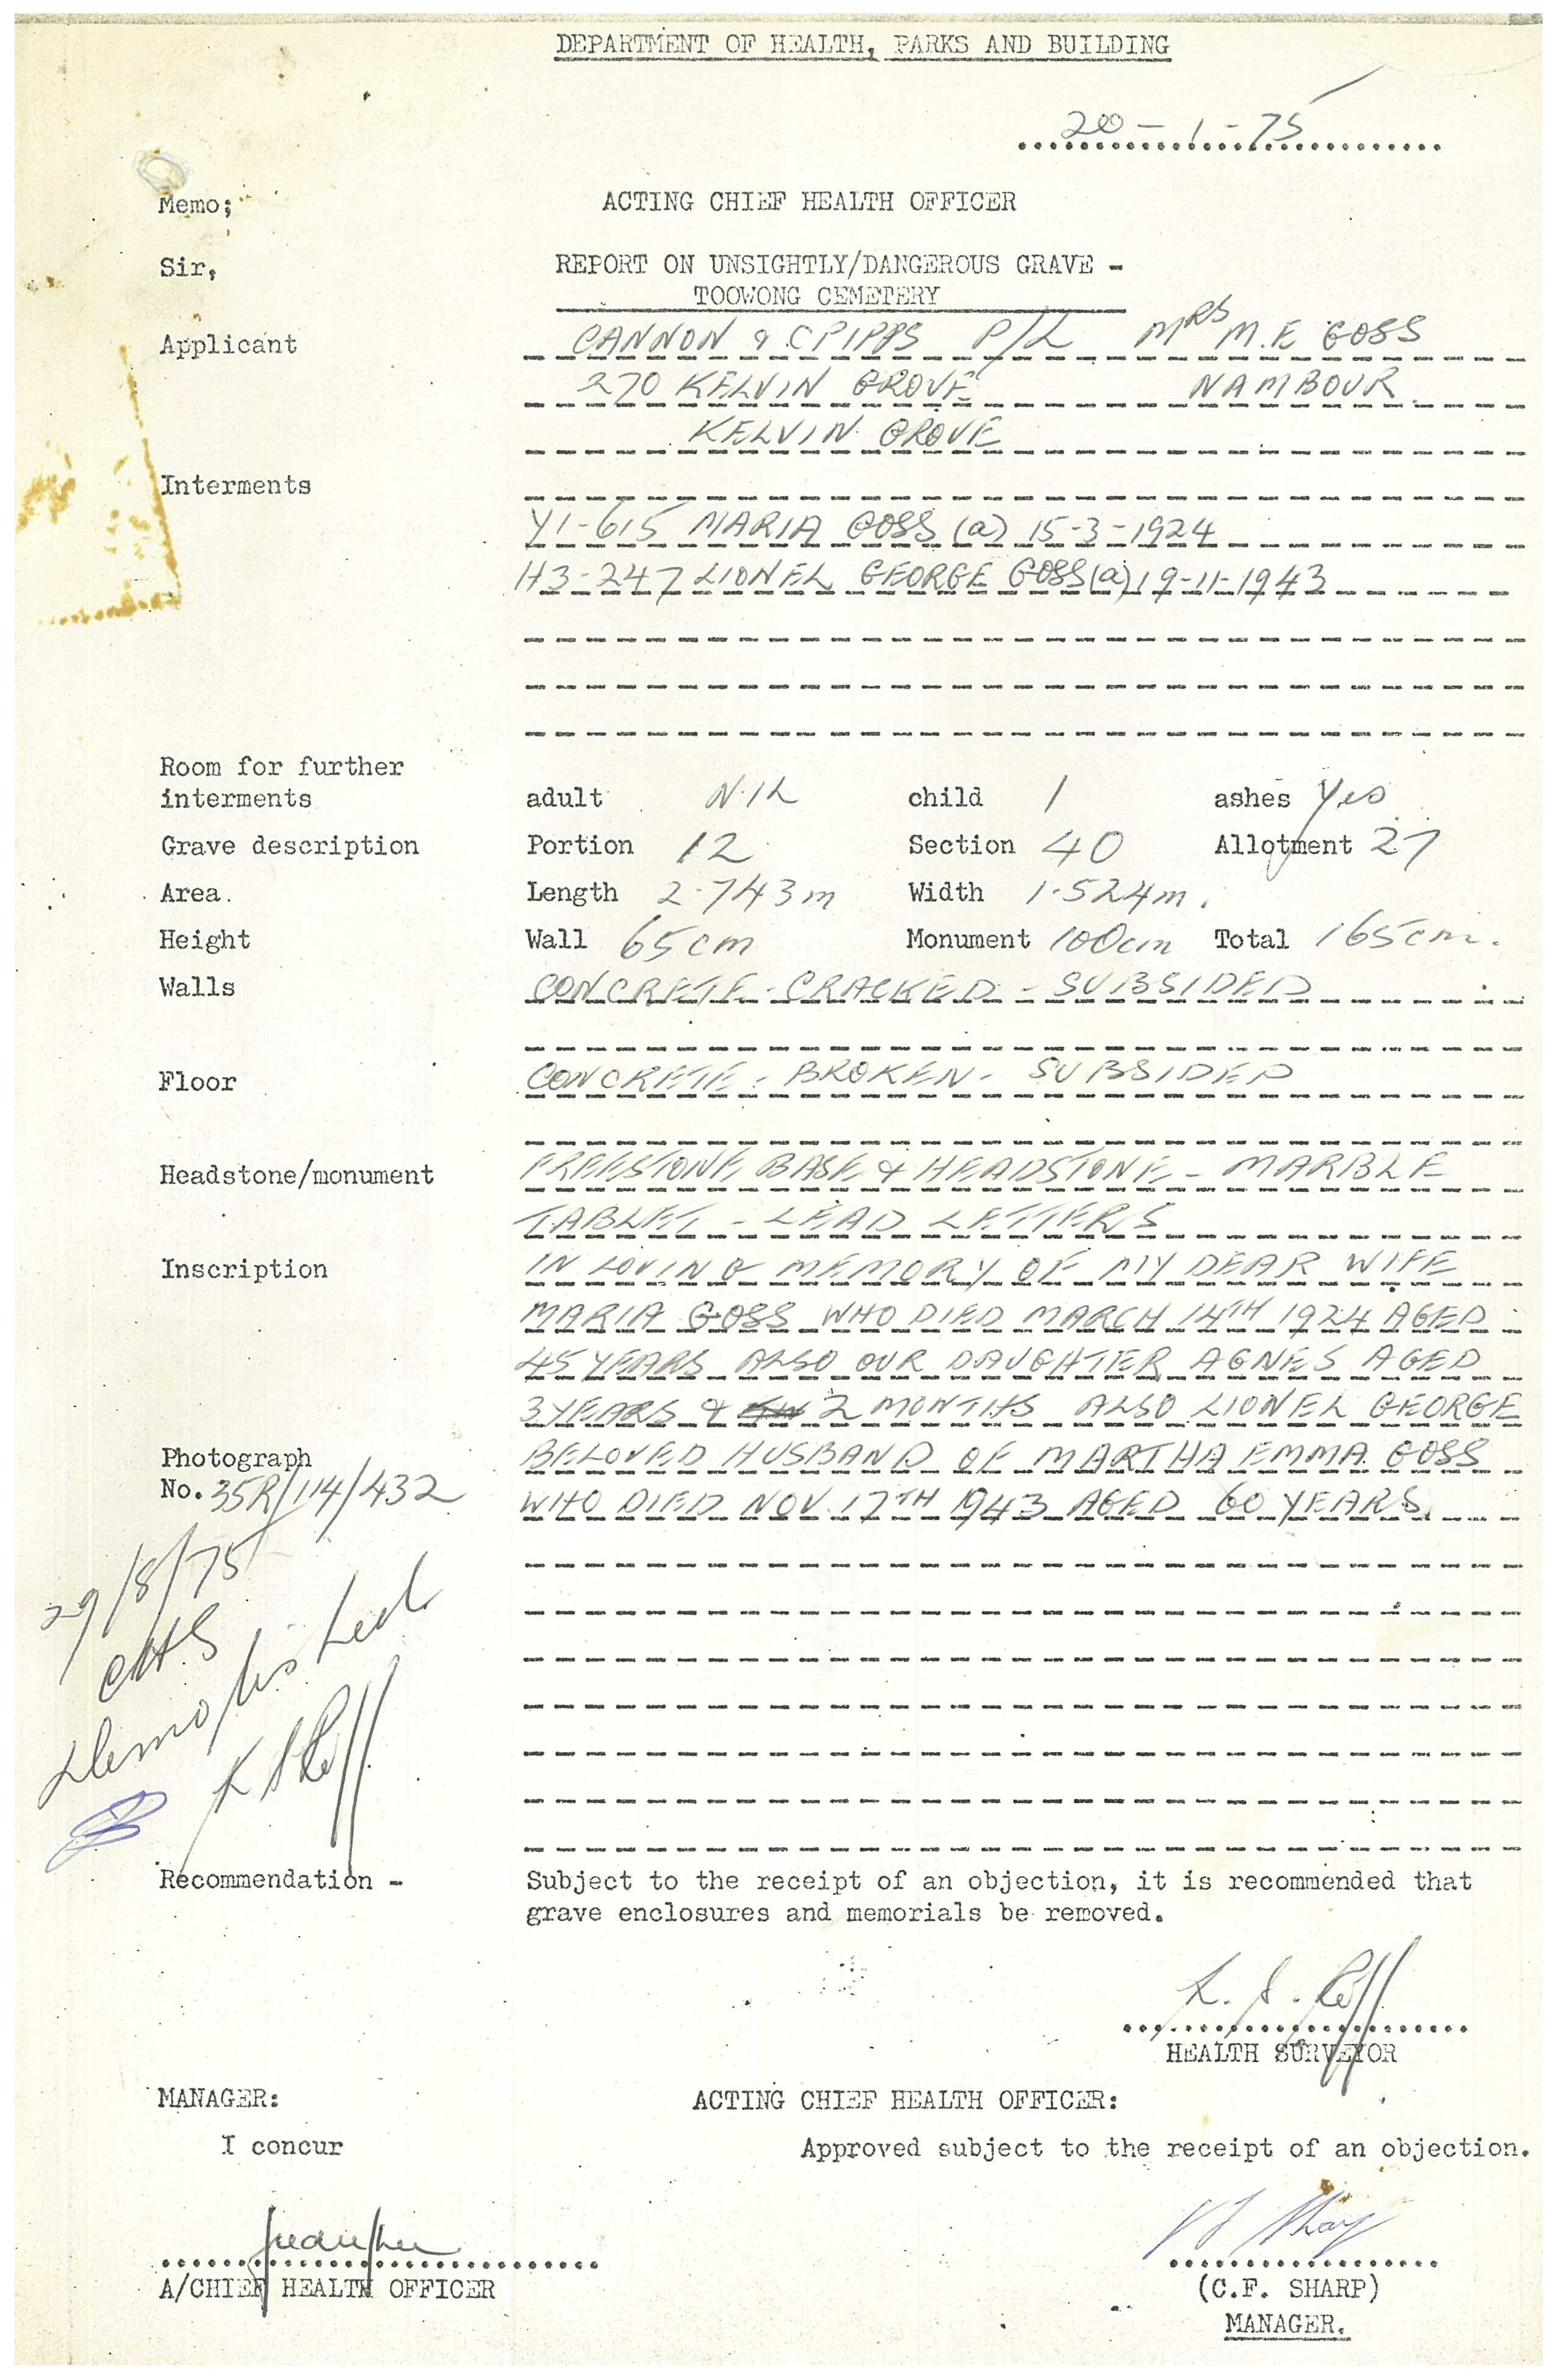 DEPARTMENT OF HEALTH, PARKS AND BUILDING
20-1-75
Memo; ACTING CHIEF HEALTH OFFICER
Sir, REPORT ON UNSIGHTLY/DANGEROUS GRAVE -
TOOWONG CEMETERY
Applicant CANNON & CRIPPS P/L MRS M.E GOSS
270 KELVIN GROVE NAMBOUR
KELVIN GROVE
Interments
Y1-615 MARIA GOSS (a) 15-3-1924
H3-247 LIONEL GEORGE GOSS (a) 19-11-1943
Room for further
interments adult NIL child 1 ashes Yes
Grave description Portion 12 Section 40 Allotment 27
Area. Length 2.743m Width 1.524m.
Height Wall 65cm Monument 100cm Total 165cm.
Walls CONCRETE - CRACKED - SUBSIDED
Floor CONCRETE - BROKEN - SUBSIDED
Headstone/monument FREESTONE BASE & HEADSTONE - MARBLE
TABLET - LEAD LETTERS
Inscription IN LOVING MEMORY OF MY DEAR WIFE
MARIA GOSS WHO DIED MARCH 14TH 1924 AGED
45 YEARS ALSO OUR DAUGHTER AGNES AGED
3 YEARS & 2 MONTHS ALSO LIONEL GEORGE
Photograph BELOVED HUSBAND OF MARTHA EMMA GOSS
No. 35R/114/432 WHO DIED NOV. 17TH 1943 AGED 60 YEARS
29/8/75
CHS
Demolished
Recommendation - Subject to the receipt of an objection, it is recommended that
grave enclosures and memorials be removed.
HEALTH SURVEYOR
MANAGER: ACTING CHIEF HEALTH OFFICER:
I concur Approved subject to the receipt of an objection.
A/CHIEF HEALTH OFFICER (C.F. SHARP)
MANAGER.